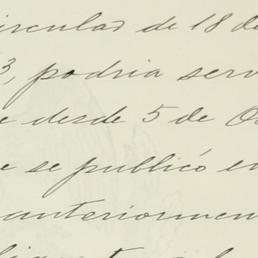 circular de 18 de
3, podria serv
e desde 5 de O
e se publicó en
anteriormen